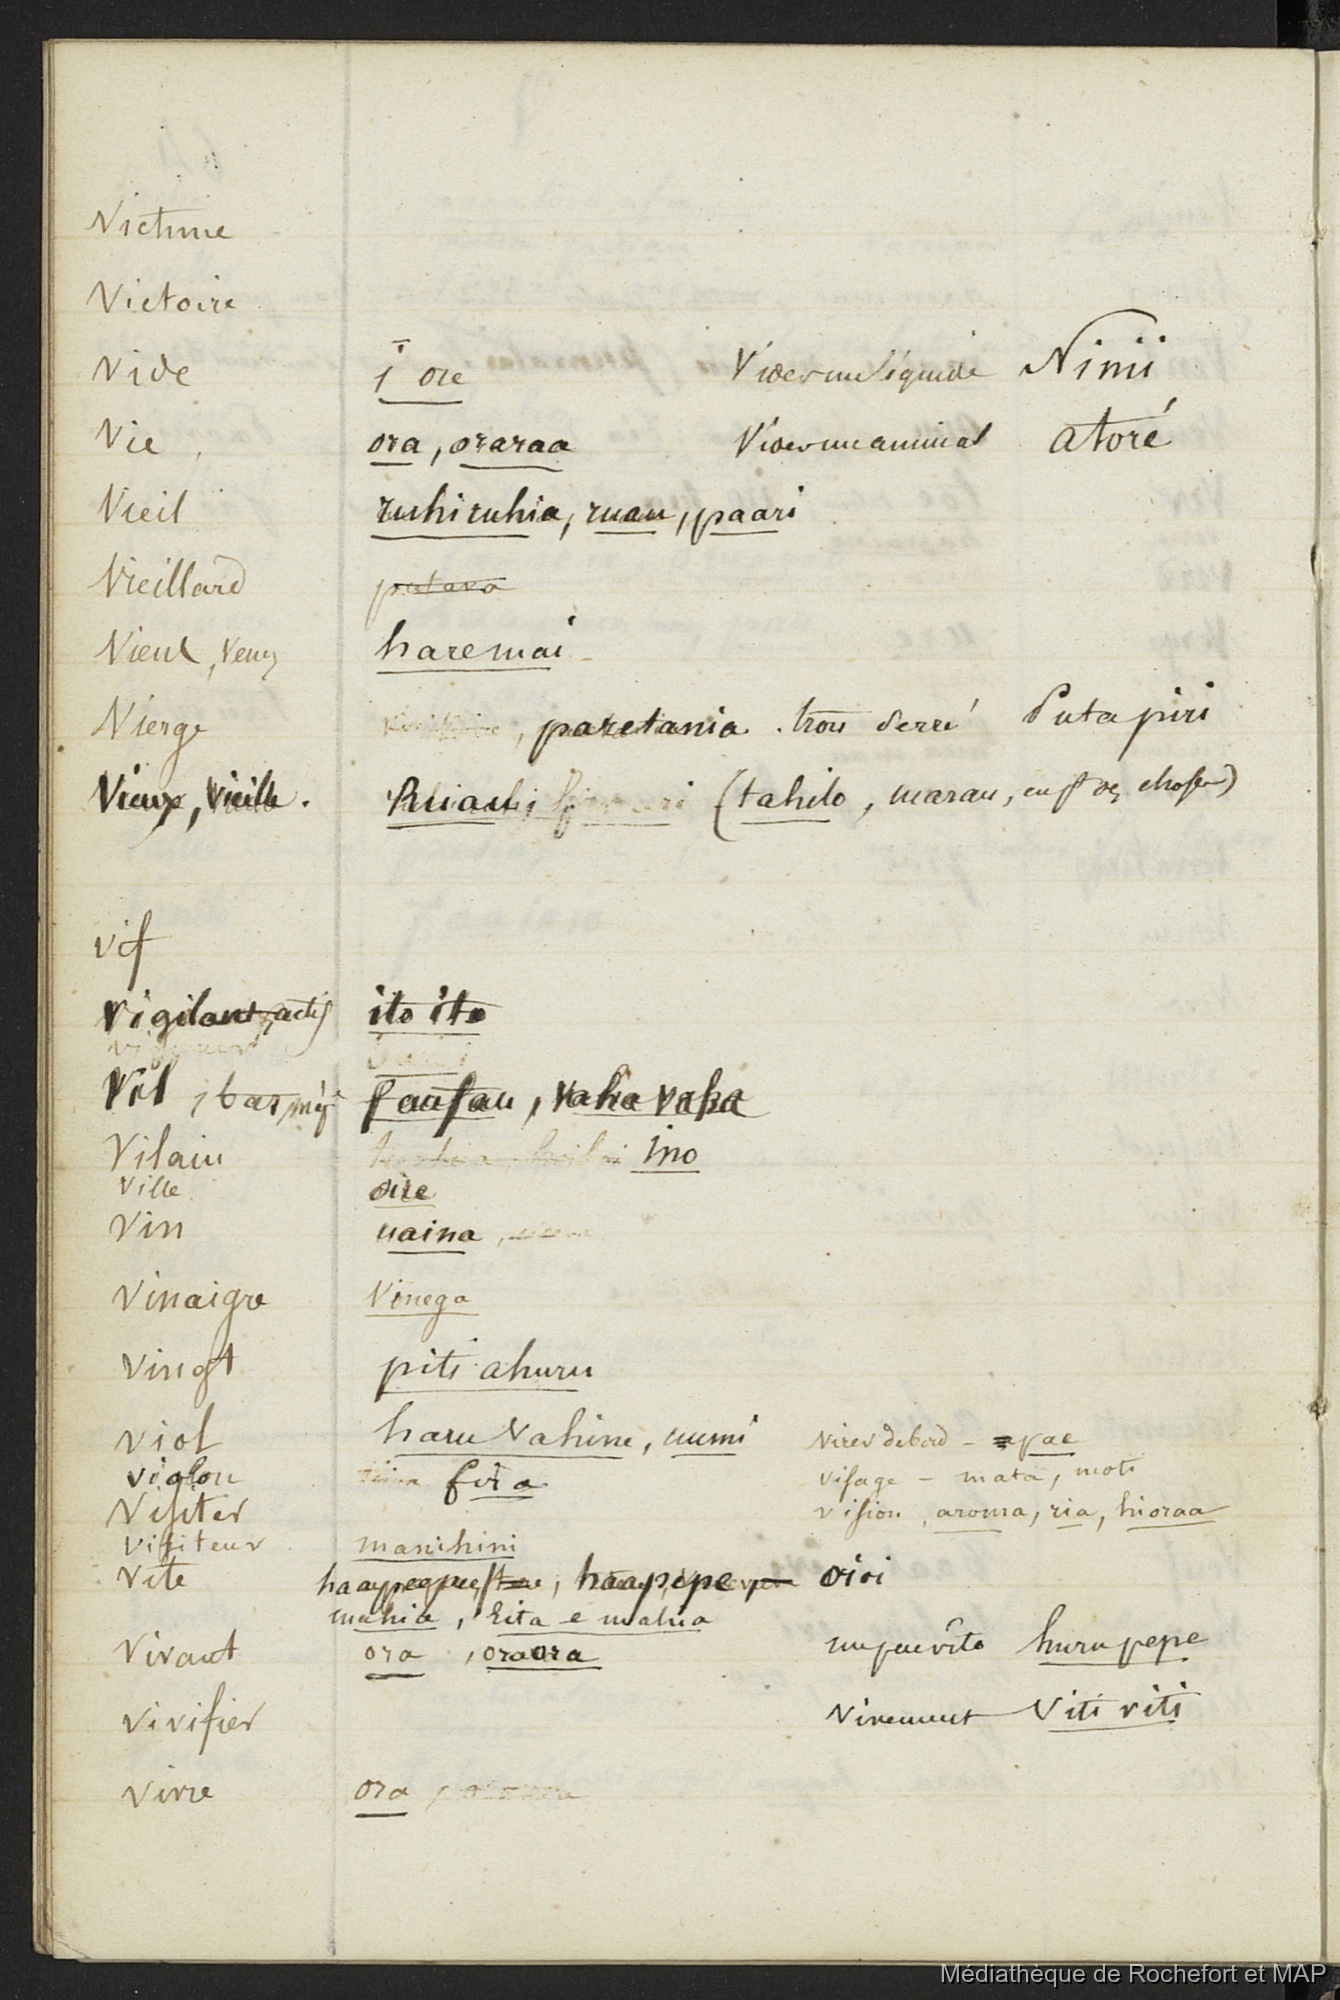 Victime
Victoire
Vide ī ore Vider un liquide Ninii
Vie, ora, oraraa Vider un animal atoré
Vieil ruhiruhia, ruau, paari
Vieillard putava
Vient, venez haremai
Vierge , paretania. trou serré Puta piri
Vieux, Vieille. (tahito, marau,
vif
Vigilant, actif ito ito
Vil, faufau, vaha vaha
Vilain ino
Ville oire
Vin uaina,
Vinaigre Vinega
vingt piti ahuru
viol haru vahine, uumi Virer de bord - apae
violon fira visage - mata, moti
Visiter vision, aroma, ria, hioraa
visiteur manihini
Vite haapeepee, haapepe oioi
mahia, rita e mahia
Vivant ora, oraora un peu vite huru pepe
vivifier Vivement Viti viti
vivre ora,
Médiathèque de Rochefort et MAP